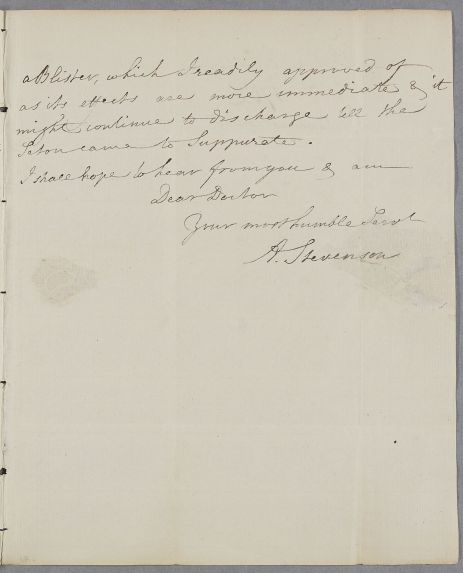 a Blister, which I readily approved of
as its effects are more immediate & it
might continue to discharge till the
Seton came to Suppurate.
I shall hope to hear from you & am
Dear Doctor
Your most humble Servt
A. Stevenson